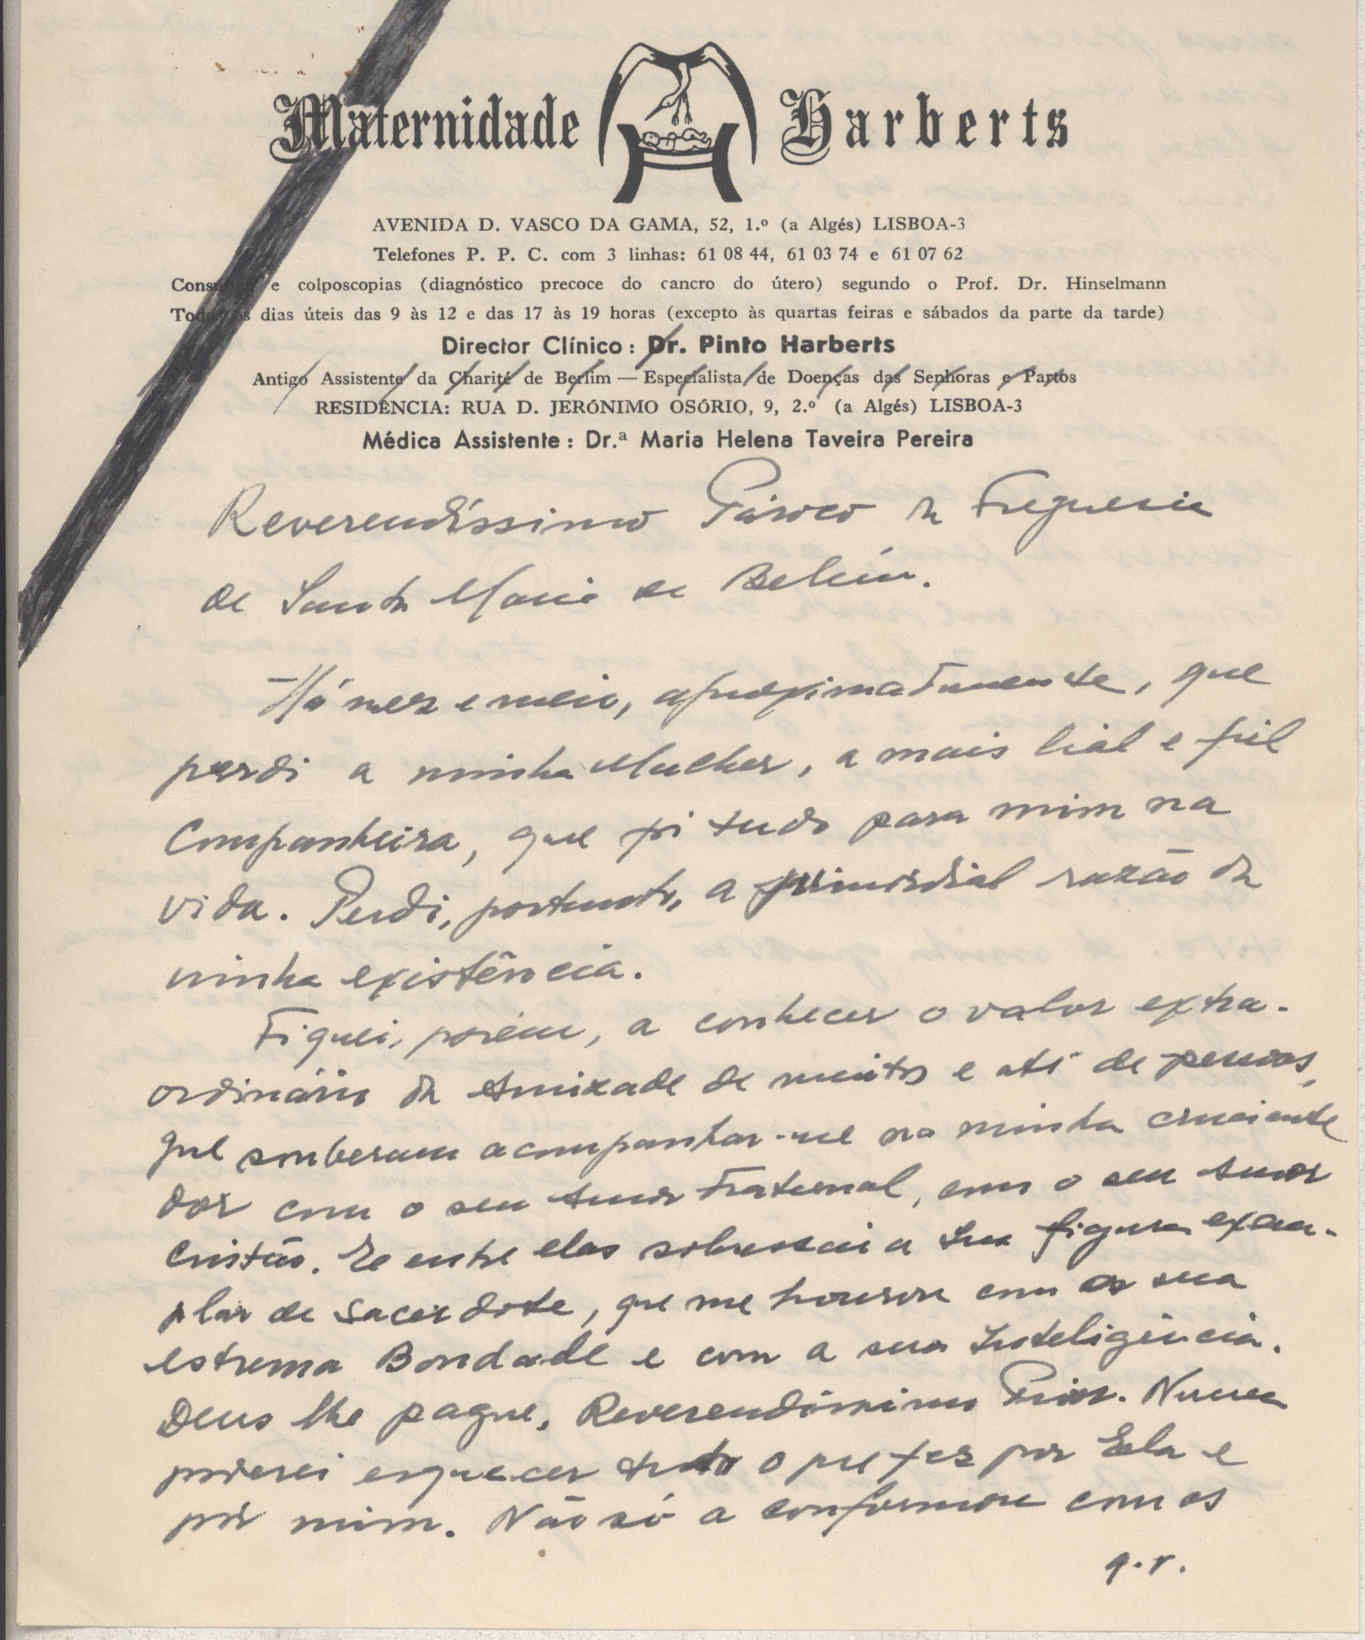 Maternidade Harberts
AVENIDA D. VASCO DA GAMA, 52, 1.º (a Algés) LISBOA-3
Telefones P. P. C. com 3 linhas: 61 08 44, 61 03 74 e 61 07 62
Consultas e colposcopias (diagnóstico precoce do cancro do útero) segundo o Prof. Dr. Hinselmann
Todos os dias úteis das 9 às 12 e das 17 às 19 horas (excepto às quartas feiras e sábados da parte da tarde)
Director Clínico: Dr. Pinto Harberts
Antigo Assistente da Charité de Berlim — Especialista de Doenças das Senhoras e Partos
RESIDÊNCIA: RUA D. JERÓNIMO OSÓRIO, 9, 2.º (a Algés) LISBOA-3
Médica Assistente: Dr.ª Maria Helena Taveira Pereira
Reverendíssimo Pároco da Freguesia
de Santa Maria de Belém.
Há mez e meio, aproximadamente, que
perdi a minha Mulher, a mais lial e fiel
Companheira, que foi tudo para mim na
vida. Perdi, portanto, a primordial razão da
minha existência.
Fiquei, porém, a conhecer o valor extra-
ordinário da Amizade de muitos e até de pessoas,
que souberam acompanhar-me na minha cruciante
dor com o seu Amor Fraternal, com o seu Amor
Cristão. E entre elas sobressai a Sua figura exem-
plar de Sacerdote, que me honrou com a sua
estrema Bondade e com a sua Inteligência.
Deus lhe pague, Reverendíssimo Prior. Nunca
poderei esquecer tudo o que fez por Ela e
por mim. Não só a conformou com os
q. v.